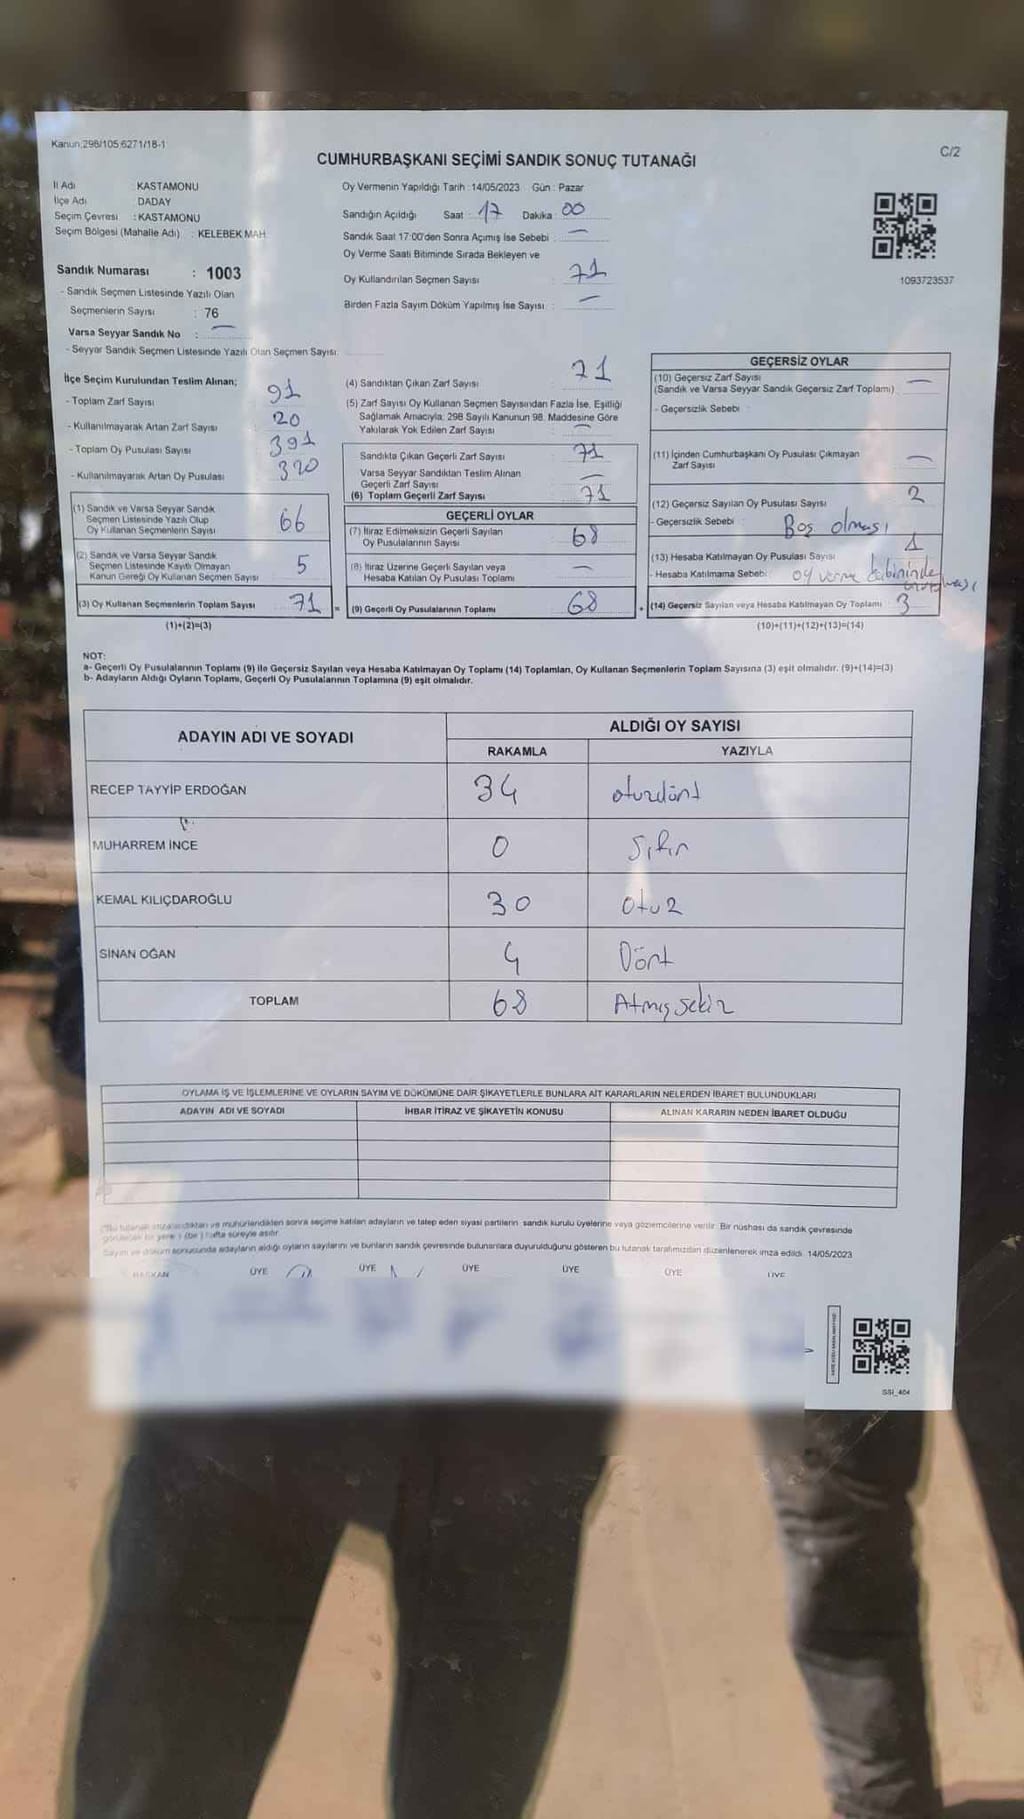 Kanun;298/105,6271/18-1
C/2
CUMHURBAŞKANI SEÇİMİ SANDIK SONUÇ TUTANAĞI
İl Adı : KASTAMONU
İlçe Adı : DADAY
Seçim Çevresi : KASTAMONU
Seçim Bölgesi (Mahalle Adı) : KELEBEK MAH.
Sandık Numarası : 1003
- Sandık Seçmen Listesinde Yazılı Olan
Seçmenlerin Sayısı : 76
Varsa Seyyar Sandık No : —
- Seyyar Sandık Seçmen Listesinde Yazılı Olan Seçmen Sayısı:
Oy Vermenin Yapıldığı Tarih : 14/05/2023 Gün : Pazar
Sandığın Açıldığı Saat : 17 Dakika : 00
Sandık Saat 17:00'den Sonra Açılmış İse Sebebi : —
Oy Verme Saati Bitiminde Sırada Bekleyen ve
Oy Kullandırılan Seçmen Sayısı : 71
Birden Fazla Sayım Döküm Yapılmış İse Sayısı : —
1093723537
İlçe Seçim Kurulundan Teslim Alınan;
- Toplam Zarf Sayısı 91
- Kullanılmayarak Artan Zarf Sayısı 20
- Toplam Oy Pusulası Sayısı 391
- Kullanılmayarak Artan Oy Pusulası 320
(1) Sandık ve Varsa Seyyar Sandık
Seçmen Listesinde Yazılı Olup
Oy Kullanan Seçmenlerin Sayısı 66
(2) Sandık ve Varsa Seyyar Sandık
Seçmen Listesinde Kayıtlı Olmayan
Kanun Gereği Oy Kullanan Seçmen Sayısı 5
(3) Oy Kullanan Seçmenlerin Toplam Sayısı 71
(1)+(2)=(3)
(4) Sandıktan Çıkan Zarf Sayısı 71
(5) Zarf Sayısı Oy Kullanan Seçmen Sayısından Fazla İse, Eşitliği
Sağlamak Amacıyla; 298 Sayılı Kanunun 98. Maddesine Göre
Yakılarak Yok Edilen Zarf Sayısı —
Sandıkta Çıkan Geçerli Zarf Sayısı 71
Varsa Seyyar Sandıktan Teslim Alınan
Geçerli Zarf Sayısı —
(6) Toplam Geçerli Zarf Sayısı 71
GEÇERLİ OYLAR
(7) İtiraz Edilmeksizin Geçerli Sayılan
Oy Pusulalarının Sayısı 68
(8) İtiraz Üzerine Geçerli Sayılan veya
Hesaba Katılan Oy Pusulası Toplamı —
= (9) Geçerli Oy Pusulalarının Toplamı 68
GEÇERSİZ OYLAR
(10) Geçersiz Zarf Sayısı
(Sandık ve Varsa Seyyar Sandık Geçersiz Zarf Toplamı) : —
- Geçersizlik Sebebi :
(11) İçinden Cumhurbaşkanı Oy Pusulası Çıkmayan
Zarf Sayısı —
(12) Geçersiz Sayılan Oy Pusulası Sayısı 2
- Geçersizlik Sebebi : Boş olması
(13) Hesaba Katılmayan Oy Pusulası Sayısı 1
- Hesaba Katılmama Sebebi: oy verme kabininde
+ (14) Geçersiz Sayılan veya Hesaba Katılmayan Oy Toplamı 3
(10)+(11)+(12)+(13)=(14)
NOT:
a- Geçerli Oy Pusulalarının Toplamı (9) ile Geçersiz Sayılan veya Hesaba Katılmayan Oy Toplamı (14) Toplamları, Oy Kullanan Seçmenlerin Toplam Sayısına (3) eşit olmalıdır. (9)+(14)=(3)
b- Adayların Aldığı Oyların Toplamı, Geçerli Oy Pusulalarının Toplamına (9) eşit olmalıdır.
ADAYIN ADI VE SOYADI ALDIĞI OY SAYISI
RAKAMLA YAZIYLA
RECEP TAYYİP ERDOĞAN 34 otuzdört
MUHARREM İNCE 0 Sıfır
KEMAL KILIÇDAROĞLU 30 Otuz
SİNAN OĞAN 4 Dört
TOPLAM 68 Atmış sekiz
OYLAMA İŞ VE İŞLEMLERİNE VE OYLARIN SAYIM VE DÖKÜMÜNE DAİR ŞİKAYETLERLE BUNLARA AİT KARARLARIN NELERDEN İBARET BULUNDUKLARI
ADAYIN ADI VE SOYADI İHBAR İTİRAZ VE ŞİKAYETİN KONUSU ALINAN KARARIN NEDEN İBARET OLDUĞU
ve mühürlendikten sonra seçime katılan adayların ve talep eden siyasi partilerin sandık kurulu üyelerine veya gözlemcilerine verilir. Bir nüshası da sandık çevresinde
hafta süreyle asılır.
Sayım ve döküm sonucunda adayların aldığı oyların sayılarını ve bunların sandık çevresinde bulunanlara duyurulduğunu gösteren bu tutanak tarafımızdan düzenlenerek imza edildi. 14/05/2023
BAŞKAN ÜYE ÜYE ÜYE ÜYE ÜYE ÜYE
SSİ_404